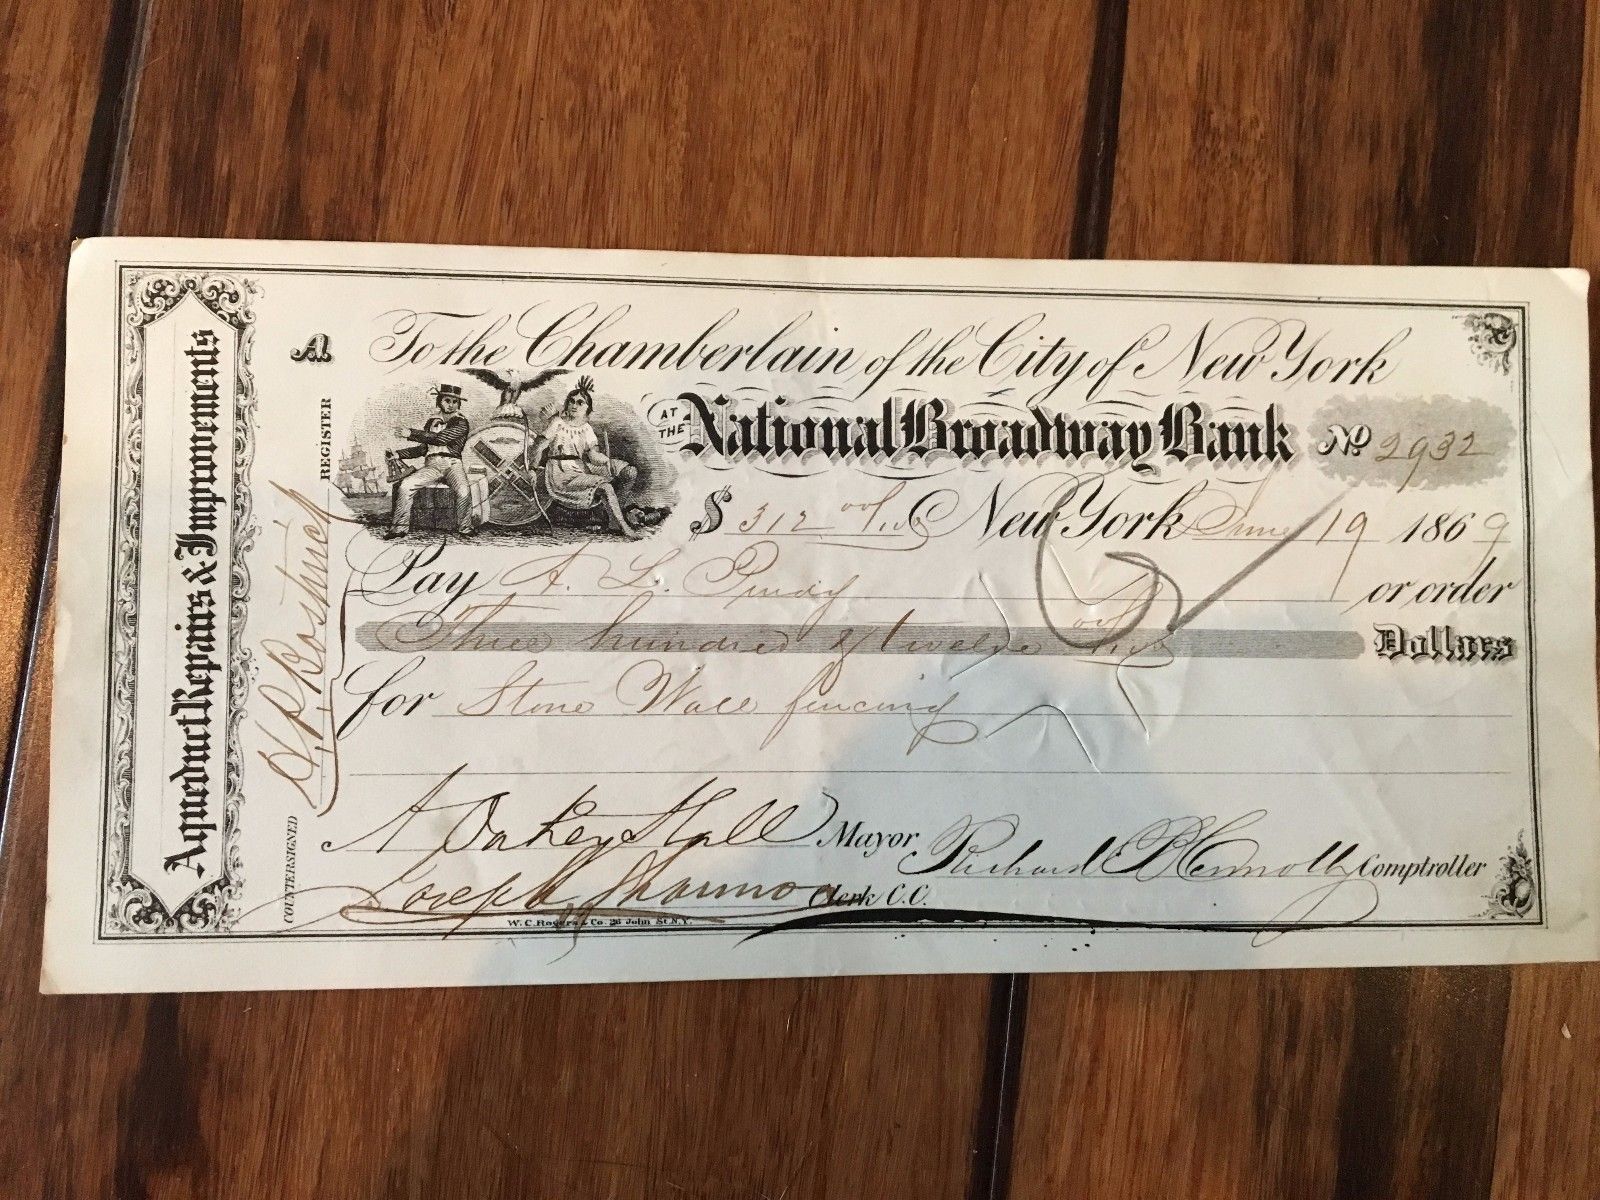 Aqueduct Repairs & Improvements
COUNTERSIGNED
REGISTER
To the Chamberlain of the City of New York
AT THE National Broadway Bank No 2932
$ 312 00/100 New York June 19 1869
Pay A. L. Purdy or order
Three hundred & twelve 00/100 Dollars
for Stone Wall fencing
A Oakey Hall Mayor Richard B Connolly Comptroller
Joseph Shannon Clerk C.C.
W. C. Rogers & Co. 26 John St N.Y.